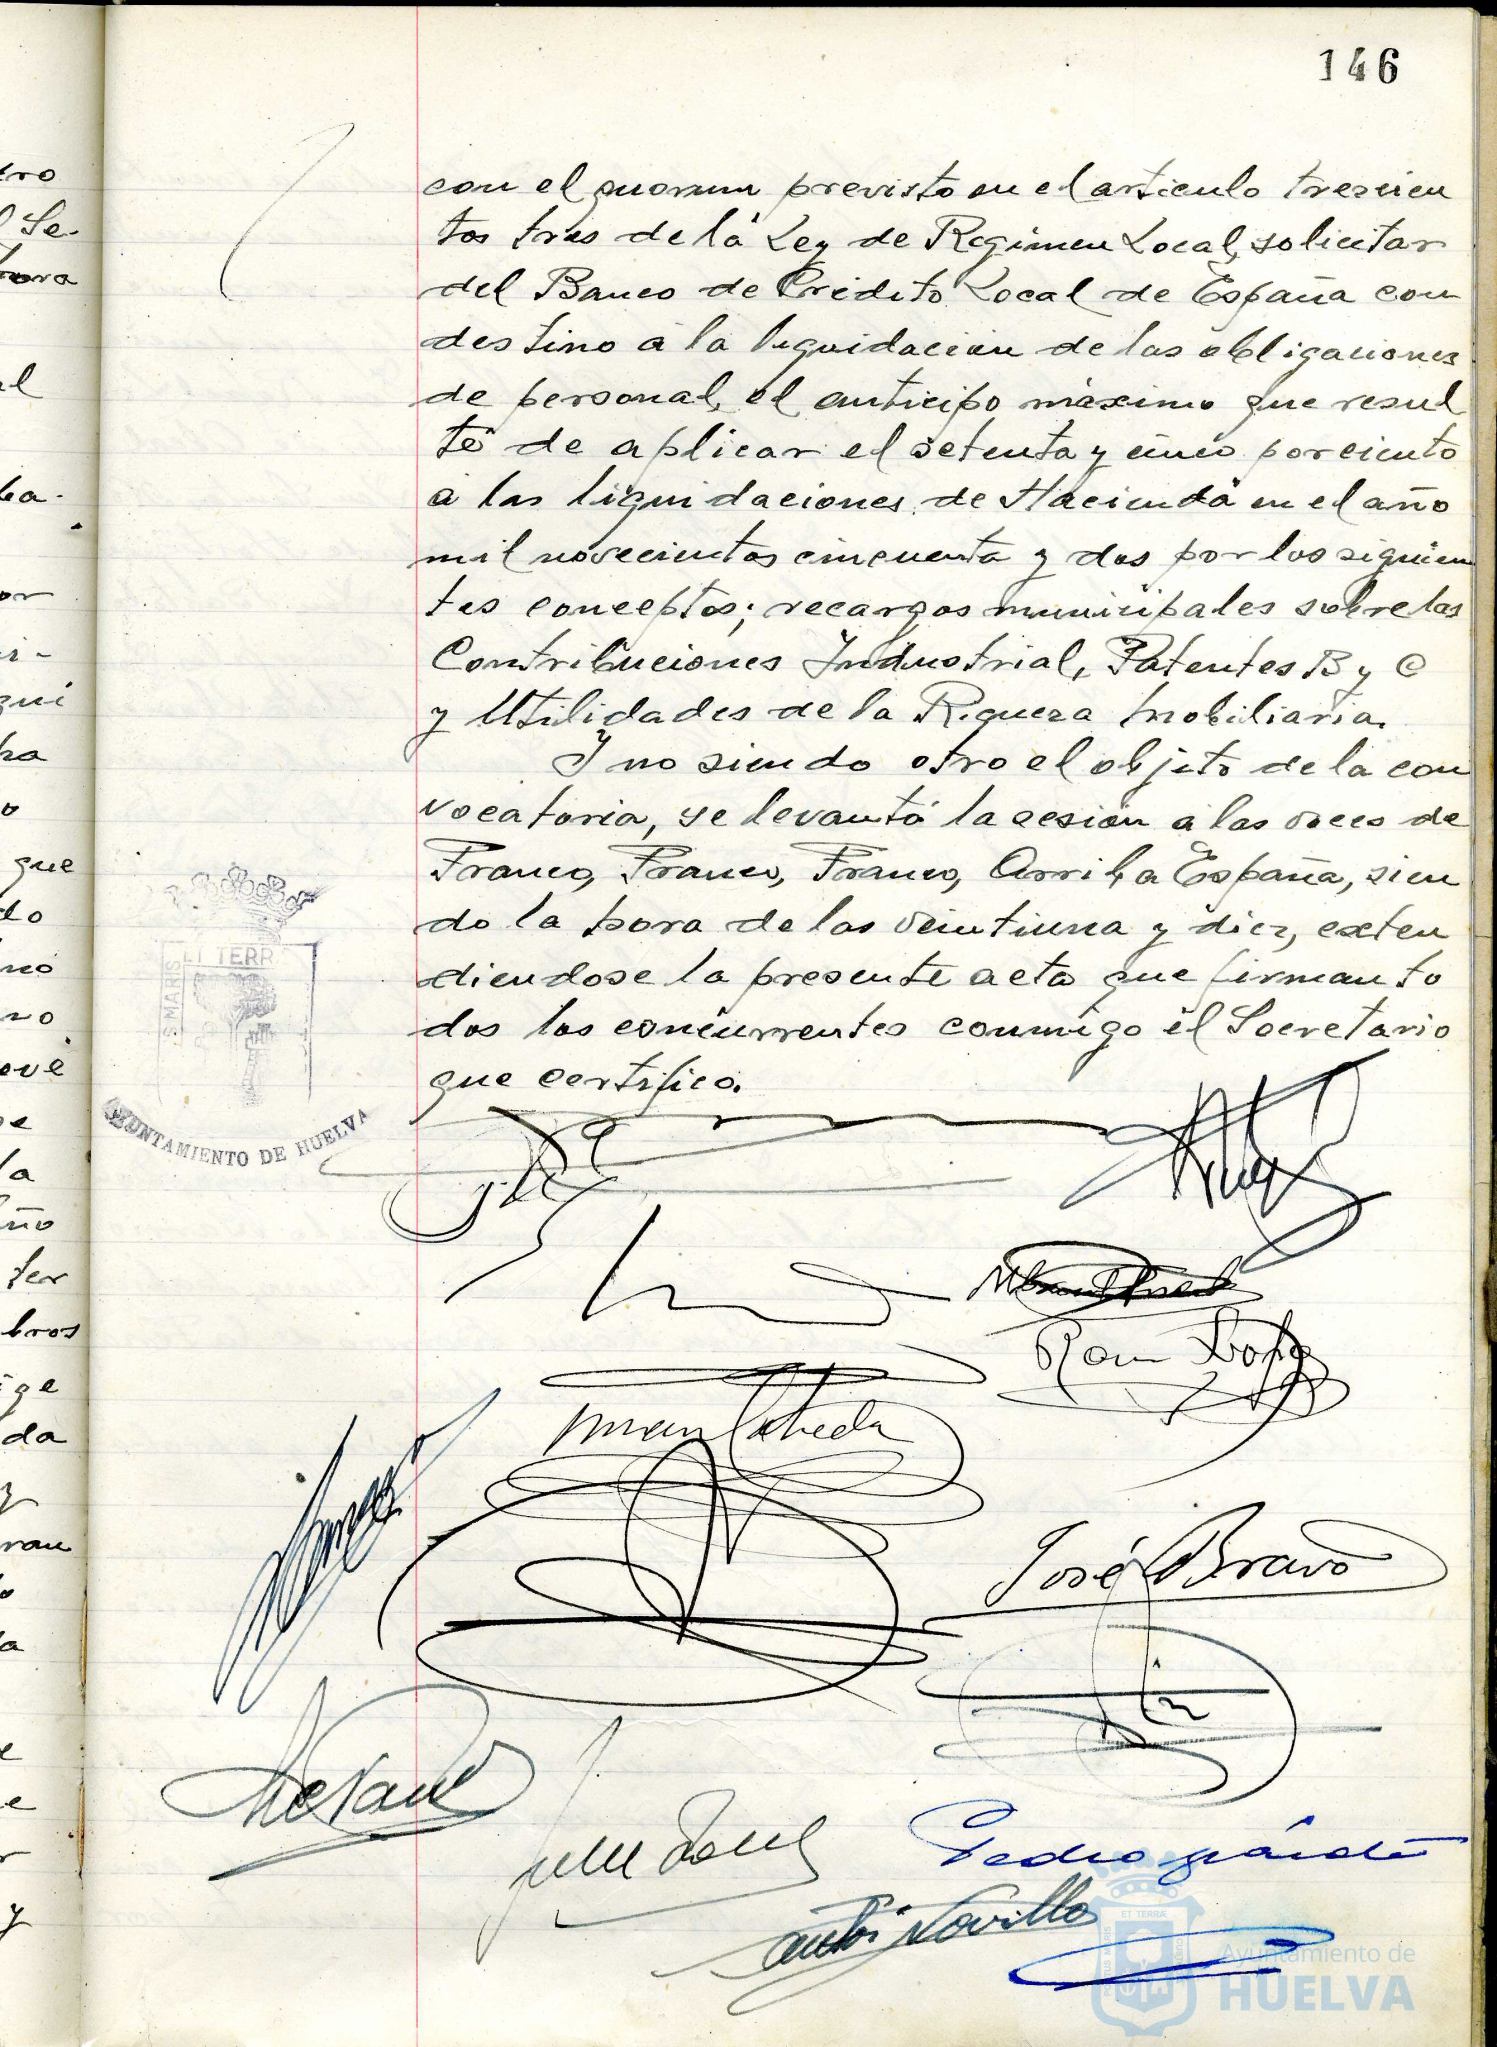 146
con el quorum previsto en el articulo trescien
tos tres de la Ley de Regimen Local, solicitar
del Banco de Crédito Local de España con
destino a la liquidación de las obligaciones
de personal, el anticipo máximo que resul
te de aplicar el setenta y cinco por ciento
a las liquidaciones de Hacienda en el año
mil novecientos cincuenta y dos por los siguien
tes conceptos; recargos municipales sobre las
Contribuciones Industrial, Patentes B y C
y Utilidades de la Riqueza Mobiliaria.
Y no siendo otro el objeto de la con
vocatoria, se levantó la sesión a las voces de
Franco, Franco, Franco, Arriba España, sien
do la hora de las veintiuna y diez, exten
diendose la presente acta que firman to
dos los concurrentes conmigo el Secretario
que certifico.
S MARIS ET TERR
AYUNTAMIENTO DE HUELVA
José Bravo
Pedro
Novillo
Ayuntamiento de
HUELVA
tro
l Se-
al
ba-
or
qui
ha
o
que
do
no
no
de
la
ño
ter
bros
ige
da
y
ran
la
e
e
r
y